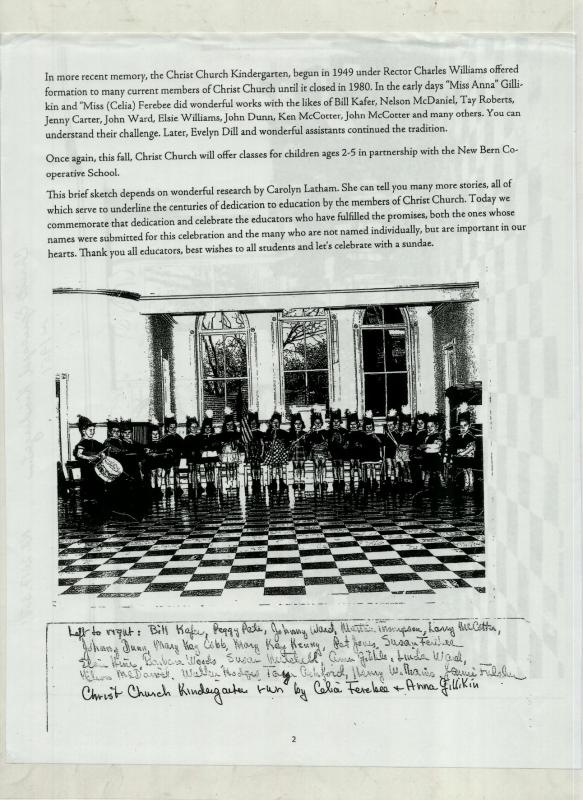 In more recent memory, the Christ Church Kindergarten, begun in 1949 under Rector Charles Williams offered
formation to many current members of Christ Church until it closed in 1980. In the early days "Miss Anna" Gilli-
kin and "Miss (Celia) Ferebee did wonderful works with the likes of Bill Kafer, Nelson McDaniel, Tay Roberts,
Jenny Carter, John Ward, Elsie Williams, John Dunn, Ken McCotter, John McCotter and many others. You can
understand their challenge. Later, Evelyn Dill and wonderful assistants continued the tradition.
Once again, this fall, Christ Church will offer classes for children ages 2-5 in partnership with the New Bern Co-
operative School.
This brief sketch depends on wonderful research by Carolyn Latham. She can tell you many more stories, all of
which serve to underline the centuries of dedication to education by the members of Christ Church. Today we
commemorate that dedication and celebrate the educators who have fulfilled the promises, both the ones whose
names were submitted for this celebration and the many who are not named individually, but are important in our
hearts. Thank you all educators, best wishes to all students and let's celebrate with a sundae.
Left to right: Bill Kafer, Peggy Pate, Johnny Ward, Martin Thompson, Larry McCotter,
Johnny Dunn, Mary Kay Cobb, Mary Kay Henry, Pat Jones, Susan Ferebee
Barbara Woods, Susan Mitchell, Anne Gibbs, Linda Ward,
Nelson McDaniel, Walter Hodges, Ashford, Henry Williams,
Christ Church Kindergarten run by Celia Ferebee + Anna Gillikin
2